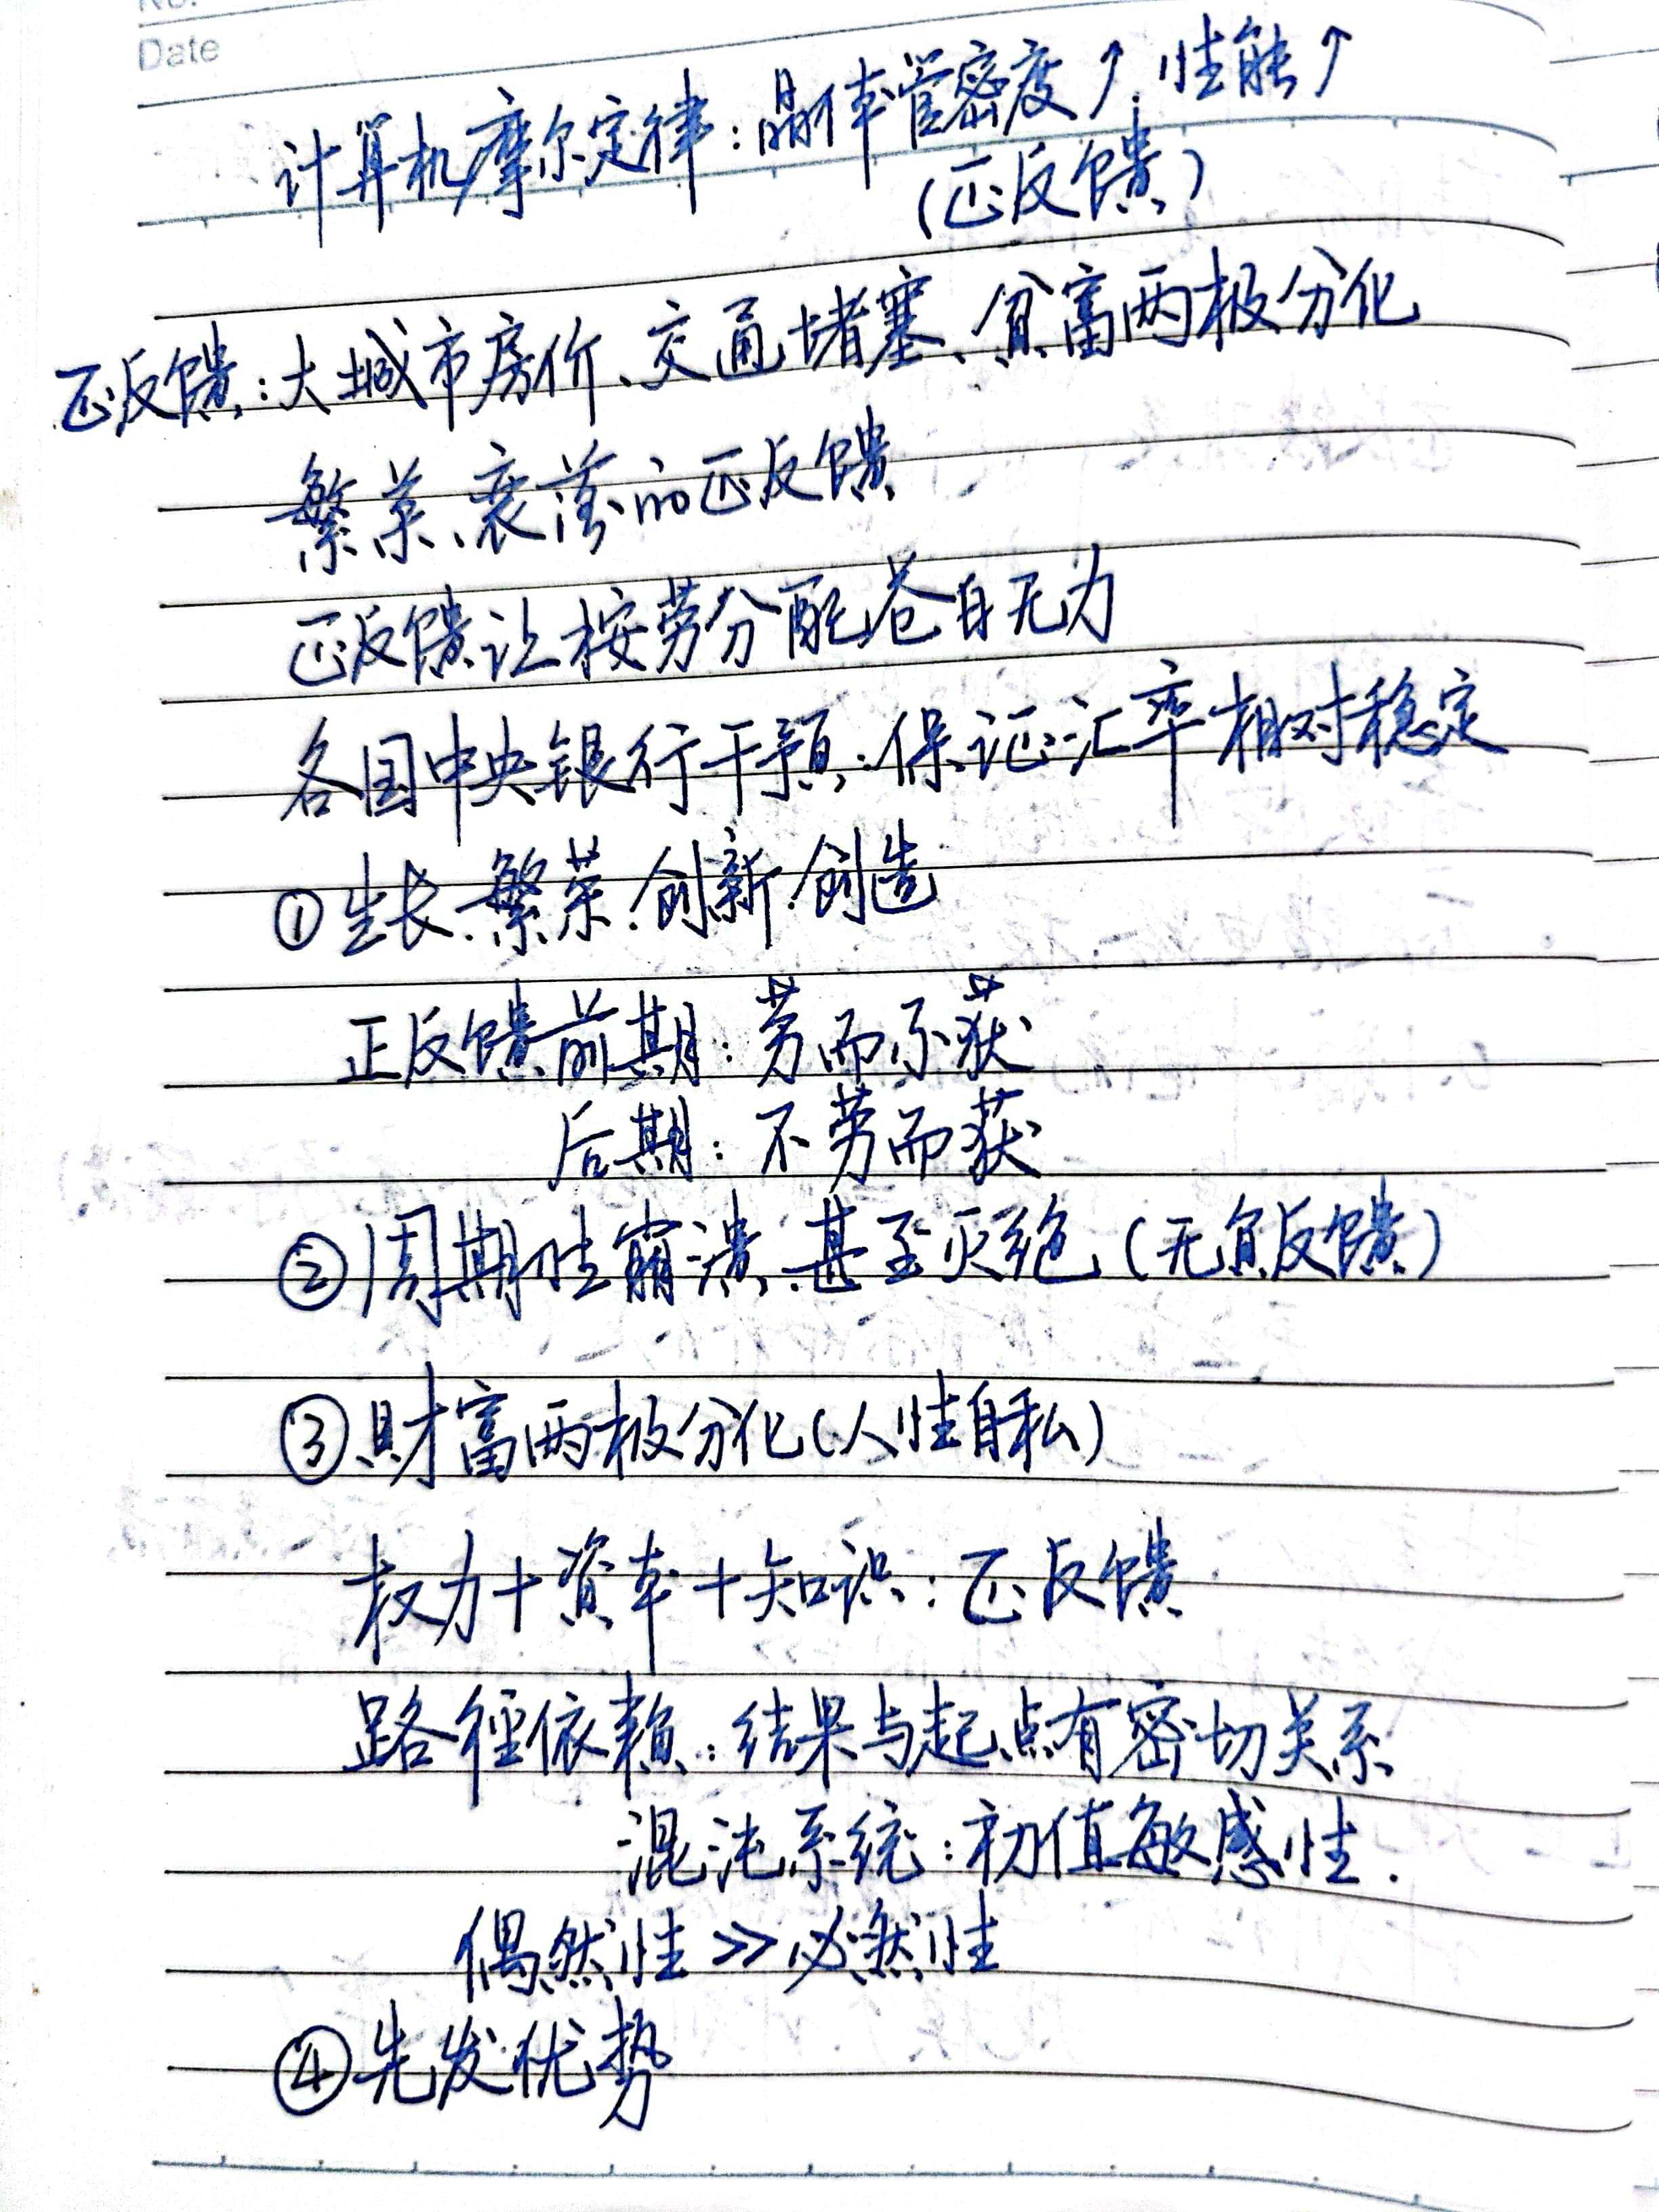 No.
Date
计算机摩尔定律：晶体管密度↑，性能↑
（正反馈）
正反馈：大城市房价、交通堵塞、贫富两极分化
繁荣、衰落的正反馈
正反馈让按劳分配苍白无力
各国中央银行干预：保证汇率相对稳定
①生长、繁荣、创新、创造
正反馈前期：劳而不获
后期：不劳而获
②周期性崩溃、甚至灭绝（无负反馈）
③财富两极分化（人性自私）
权力+资本+知识：正反馈
路径依赖：结果与起点有密切关系
混沌系统：初值敏感性.
偶然性≫必然性
④先发优势